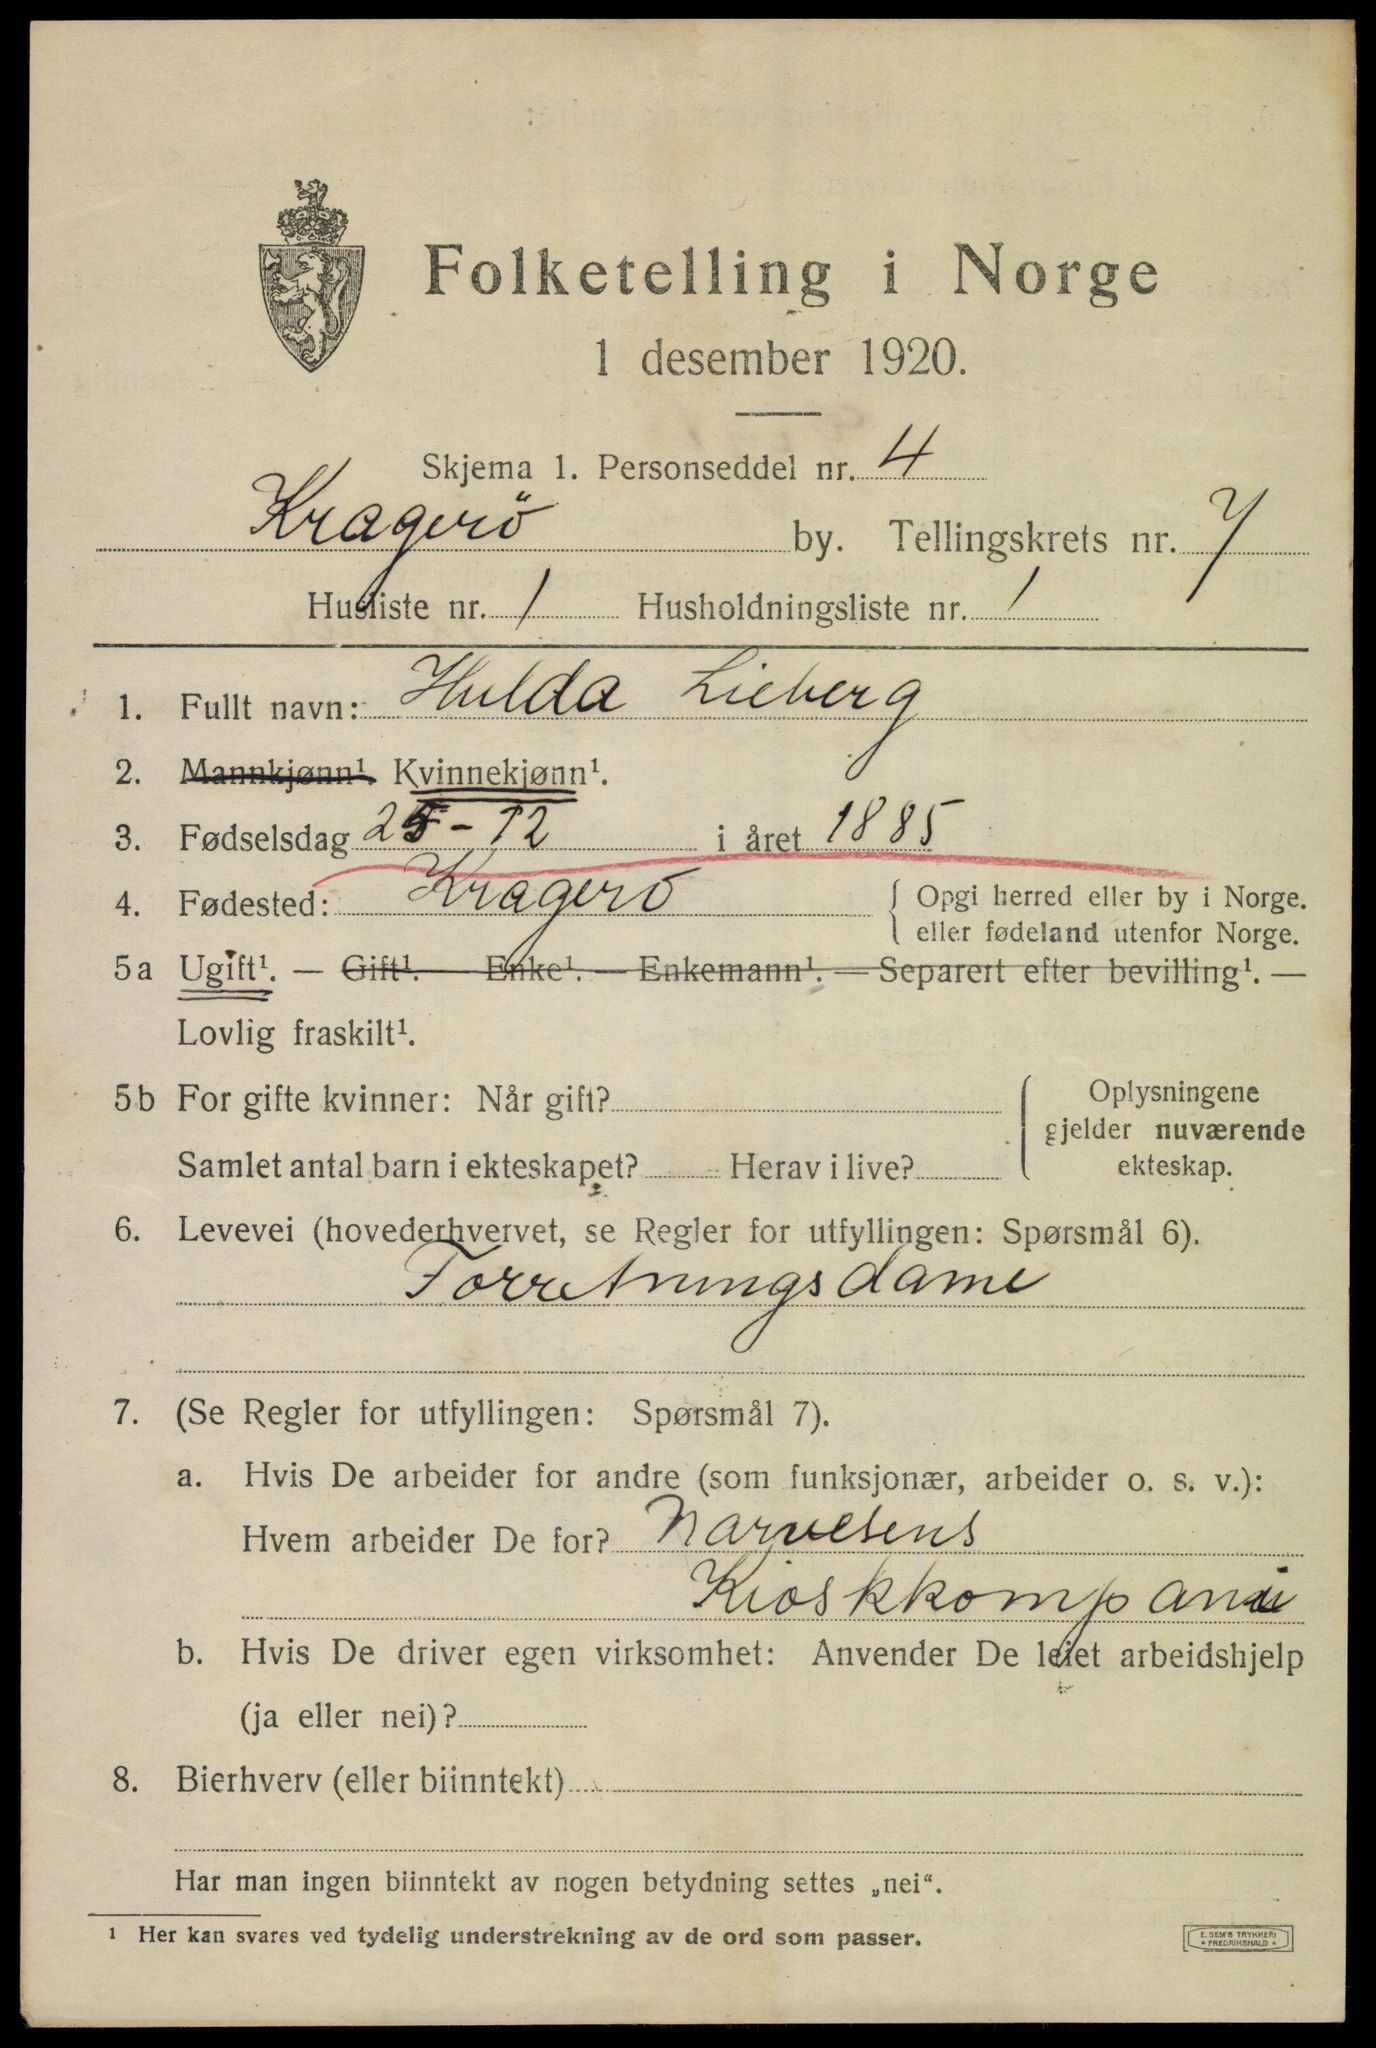 Folketelling i Norge
1 desember 1920.
Skjema 1. Personseddel nr. 4
Kragerö by. Tellingskrets nr. 7
Husliste nr. 1 Husholdningsliste nr. 1
1. Fullt navn: Hulda Lieberg
2. Mannkjønn¹. Kvinnekjønn¹.
3. Fødselsdag 25-12 i året 1885
4. Fødested: Kragerö { Opgi herred eller by i Norge.
eller fødeland utenfor Norge.
5a Ugift¹. — Gift¹. — Enke¹. — Enkemann¹. — Separert efter bevilling¹. —
Lovlig fraskilt¹.
5b For gifte kvinner: Når gift? { Oplysningene
gjelder nuværende
Samlet antal barn i ekteskapet? Herav i live? ekteskap.
6. Levevei (hovederhvervet, se Regler for utfyllingen: Spørsmål 6).
Forretningsdame
7. (Se Regler for utfyllingen: Spørsmål 7).
a. Hvis De arbeider for andre (som funksjonær, arbeider o. s. v.):
Hvem arbeider De for? Narvesens
Kioskkompani
b. Hvis De driver egen virksomhet: Anvender De leiet arbeidshjelp
(ja eller nei)?
8. Bierhverv (eller biinntekt)
Har man ingen biinntekt av nogen betydning settes „nei“.
¹ Her kan svares ved tydelig understrekning av de ord som passer.
E. SEM'S TRYKKERI
* FREDRIKSHALD *